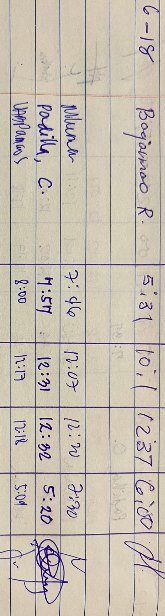 6-18 Bagamao R. 5:31 10:1 1237 6:00
7:46 12:07 12:31 7:30
Padilla, C. 7:57 12:31 12:32 5:20
8:00 12:17 12:18 5:01